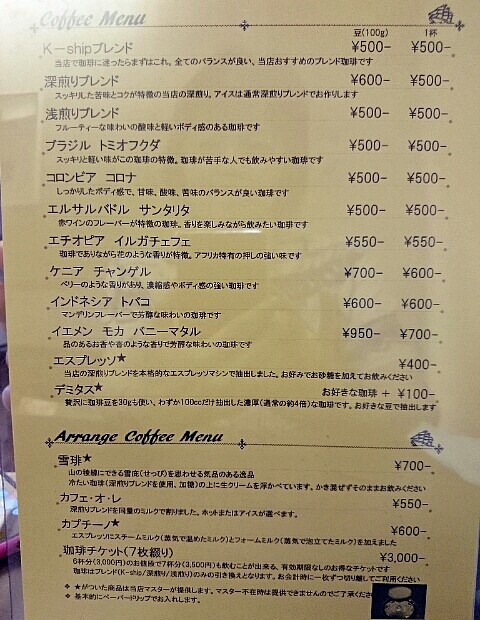 Coffee Menu
豆(100g) 1杯
K－shipブレンド ¥500- ¥500-
当店で珈琲に迷ったらまずはこれ。全てのバランスが良い、当店おすすめのブレンド珈琲です
深煎りブレンド ¥600- ¥500-
スッキリした苦味とコクが特徴の当店の深煎り。アイスは通常深煎りブレンドでお作りします
浅煎りブレンド ¥500- ¥500-
フルーティーな味わいの酸味と軽いボディ感のある珈琲です
ブラジル トミオフクダ ¥500- ¥500-
スッキリと軽い味がこの珈琲の特徴。珈琲が苦手な人でも飲みやすい珈琲です
コロンビア コロナ ¥500- ¥500-
しっかりしたボディ感で、甘味、酸味、苦味のバランスが良い珈琲です
エルサルバドル サンタリタ ¥500- ¥500-
赤ワインのフレーバーが特徴の珈琲。香りを楽しみながら飲みたい珈琲です
エチオピア イルガチェフェ ¥550- ¥550-
珈琲でありながら花のような香りが特徴。アフリカ特有の押しの強い味です
ケニア チャンゲル ¥700- ¥600-
ベリーのような香りがあり、濃縮感やボディ感の強い珈琲です
インドネシア トバコ ¥600- ¥600-
マンデリンフレーバーで芳醇な味わいの珈琲です
イエメン モカ バニーマタル ¥950- ¥700-
品のあるお香や香のような香りで芳醇な味わいの珈琲です
エスプレッソ★ ¥400-
当店の深煎りブレンドを本格的なエスプレッソマシンで抽出しました。お好みでお砂糖を加えてお飲みください
デミタス★ お好きな珈琲 ＋ ¥100-
贅沢に珈琲豆を30gも使い、わずか100ccだけ抽出した濃厚(通常の約4倍)な珈琲です。お好きな豆で抽出します
Arrange Coffee Menu
雪琲★ ¥700-
山の稜線にできる雪庇(せっぴ)を思わせる気品のある逸品
冷たい珈琲(深煎りブレンドを使用、加糖)の上に生クリームを浮かべています。かき混ぜずそのままお飲みください
カフェ・オ・レ ¥550-
深煎りブレンドを同量のミルクで割りました。ホットまたはアイスが選べます。
カプチーノ★ ¥600-
エスプレッソにスチームミルク(蒸気で温めたミルク)とフォームミルク(蒸気で泡立てたミルク)を加えました
珈琲チケット(7枚綴り) ¥3,000-
6杯分(3,000円)のお値段で7杯分(3,500円)も飲むことが出来る、有効期限なしのお得なチケットです
珈琲はブレンド(K-ship/深煎り/浅煎り)のみの引き換えとなります。お会計時に一枚ずつ切り離してご利用ください
❖ ★がついた商品は当店マスターが提供します。マスター不在時は提供できませんのでご了承くださ
❖ 基本的にペーパードリップでお入れします。